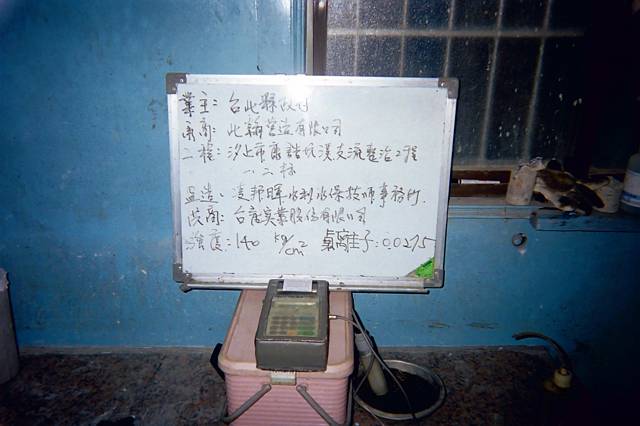 業主: 台北縣政府
承商: 北翰營造有限公司
工程: 汐止市康誥坑溪支流整治工程
一、二標
監造: 凌邦暉水利水保技師事務所
廠商: 台產實業股份有限公司
強度: 140 kg/cm² 氯離子: 0.0275